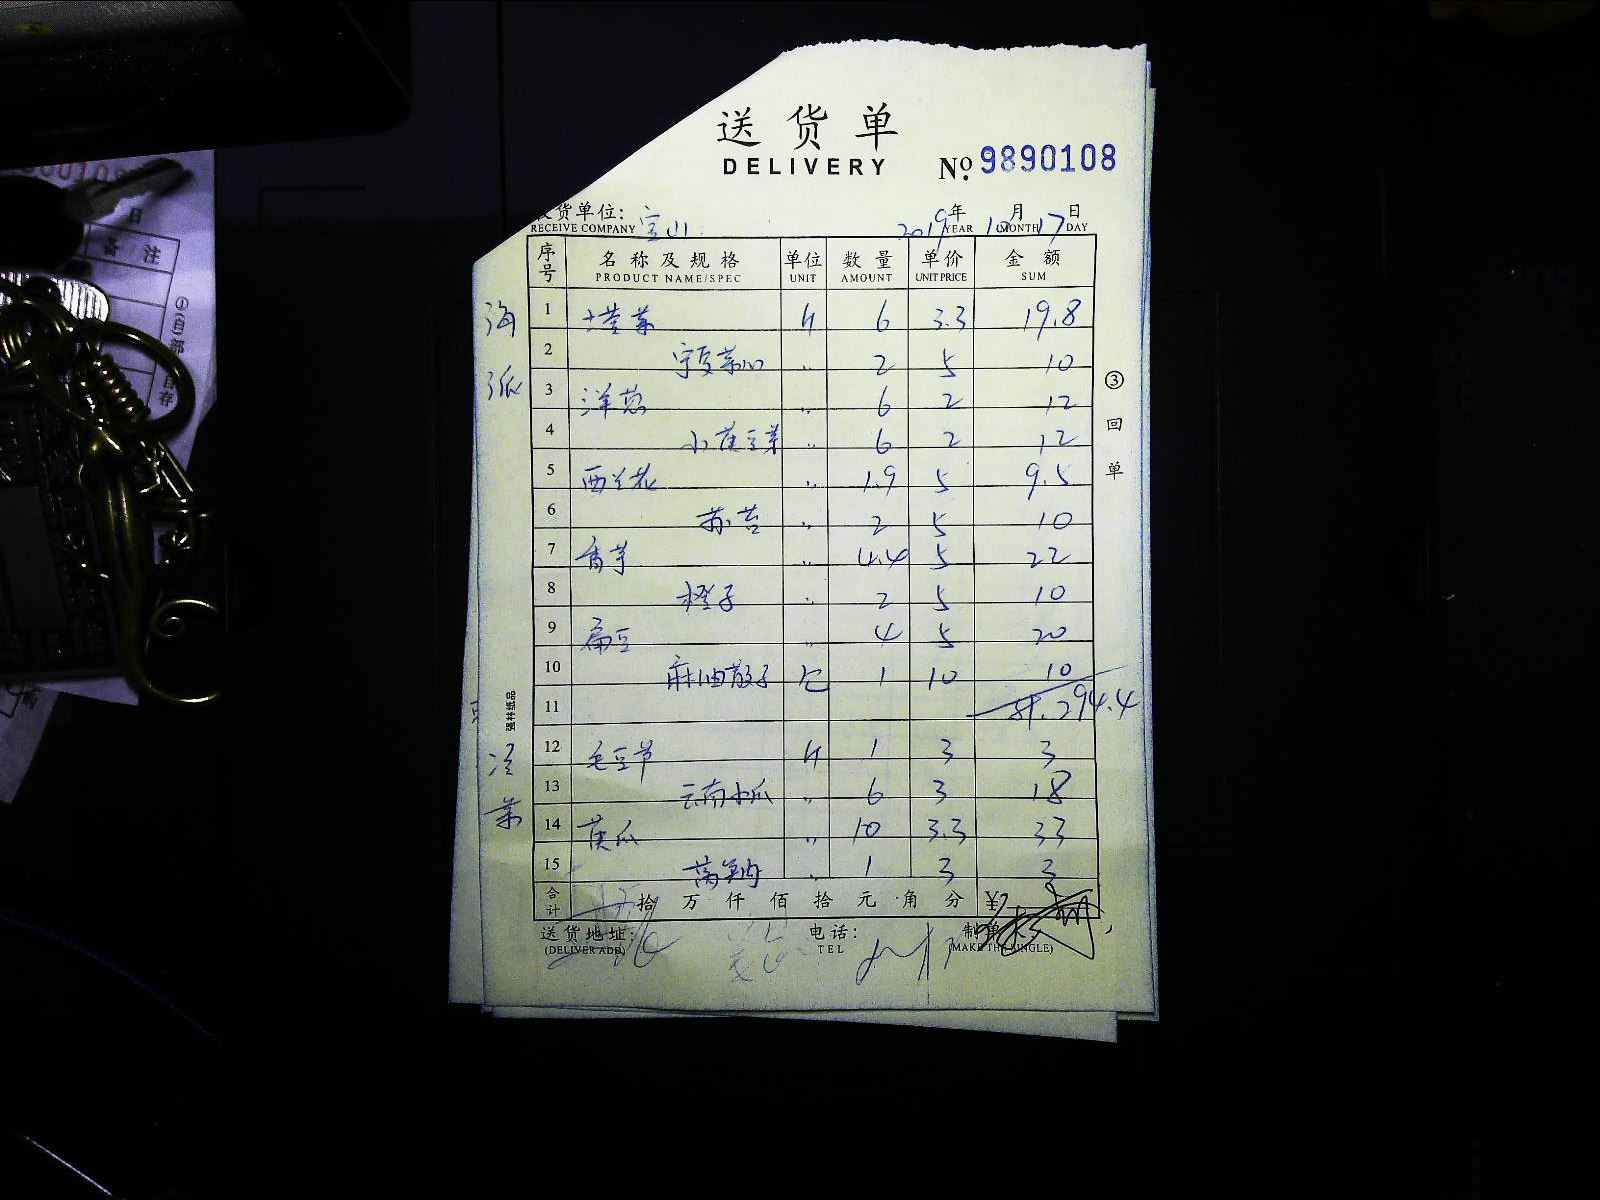 送货单
DELIVERY
No. 9890108
货单位: 宝山 2019年 10月 17日
RECEIVE COMPANY YEAR MONTH DAY
序号 名称及规格 单位 数量 单价 金额
PRODUCT NAME/SPEC UNIT AMOUNT UNIT PRICE SUM
海派
1 塔菜 斤 6 3.3 19.8
2 宁夏菜心 〃 2 5 10
3 洋葱 〃 6 2 12
4 小黄豆芽 〃 6 2 12
5 西兰花 〃 1.9 5 9.5
6 苏苔 〃 2 5 10
7 香芋 〃 4.4 5 22
8 橙子 〃 2 5 10
9 扁豆 〃 4 5 20
10 麻油馓子 包 1 10 10
11 294.4
冷菜
12 毛豆节 斤 1 3 3
13 云南小瓜 〃 6 3 18
14 黄瓜 〃 10 3.3 33
15 莴笋 〃 1 3 3
合计 拾 万 仟 佰 拾 元 角 分 ¥
送货地址: 电话: 制单
(DELIVER ADD) TEL (MAKE THE SINGLE)
③回单
强林纸品
备注
①(白)部
自存